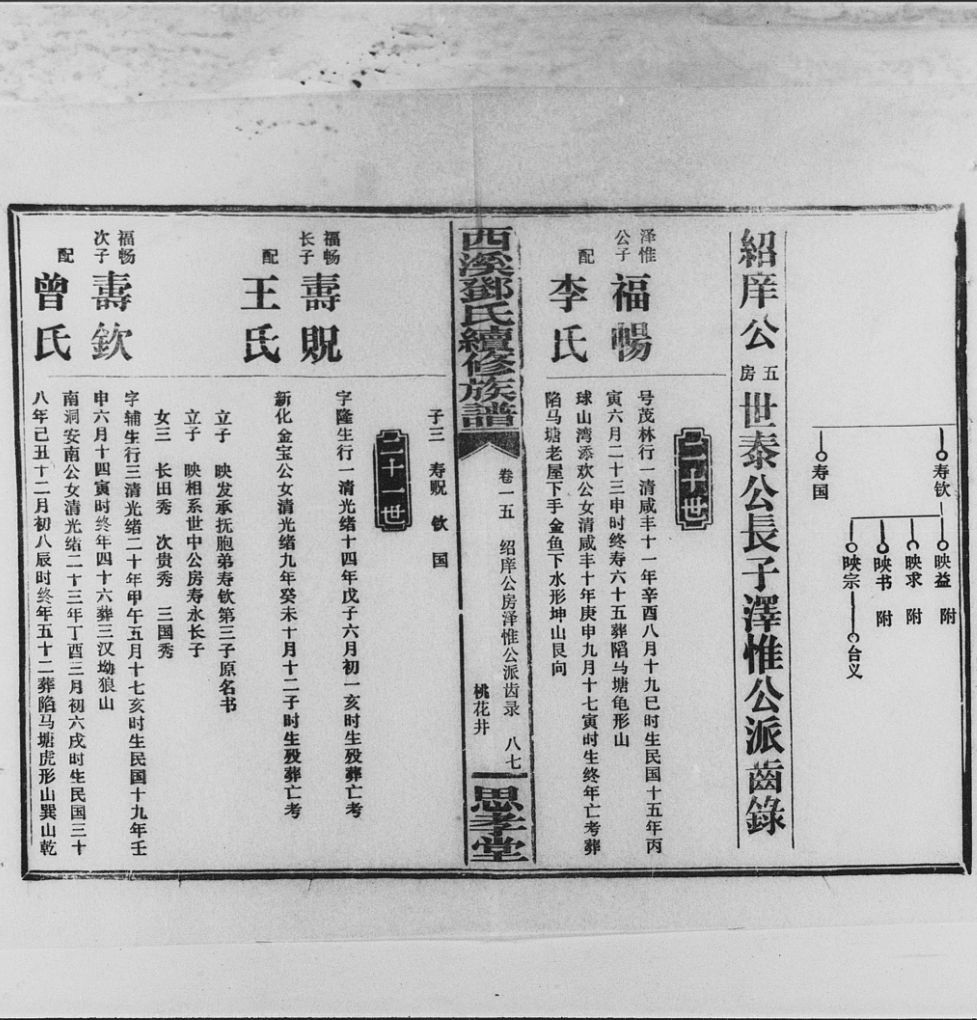 寿钦
寿国
映益 附
映求 附
映书 附
映宗
台义
紹庠公五房世泰公長子澤惟公派齒錄
二十世
泽惟公子
福暢
号茂林行一清咸丰十一年辛酉八月十九巳时生民国十五年丙
寅六月二十三申时终寿六十五葬陷马塘龟形山
配
李氏
球山湾添欢公女清咸丰十年庚申九月十七寅时生终年亡考葬
陷马塘老屋下手金鱼下水形坤山艮向
西溪鄧氏續修族譜
卷一五 绍庠公房泽惟公派齿录 八七
桃花井
思孝堂
子三 寿贶 钦 国
二十一世
福畅长子
壽貺
字隆生行一清光绪十四年戊子六月初一亥时生殁葬亡考
配
王氏
新化金宝公女清光绪九年癸未十月十二子时生殁葬亡考
立子 映发承抚胞弟寿钦第三子原名书
立子 映相系世中公房寿永长子
女三 长田秀 次贵秀 三国秀
福畅次子
壽欽
字辅生行三清光绪二十年甲午五月十七亥时生民国十九年壬
申六月十四寅时终年四十六葬三汉坳狼山
配
曾氏
南洞安南公女清光绪二十三年丁酉三月初六戌时生民国三十
八年己丑十二月初八辰时终年五十二葬陷马塘虎形山巽山乾